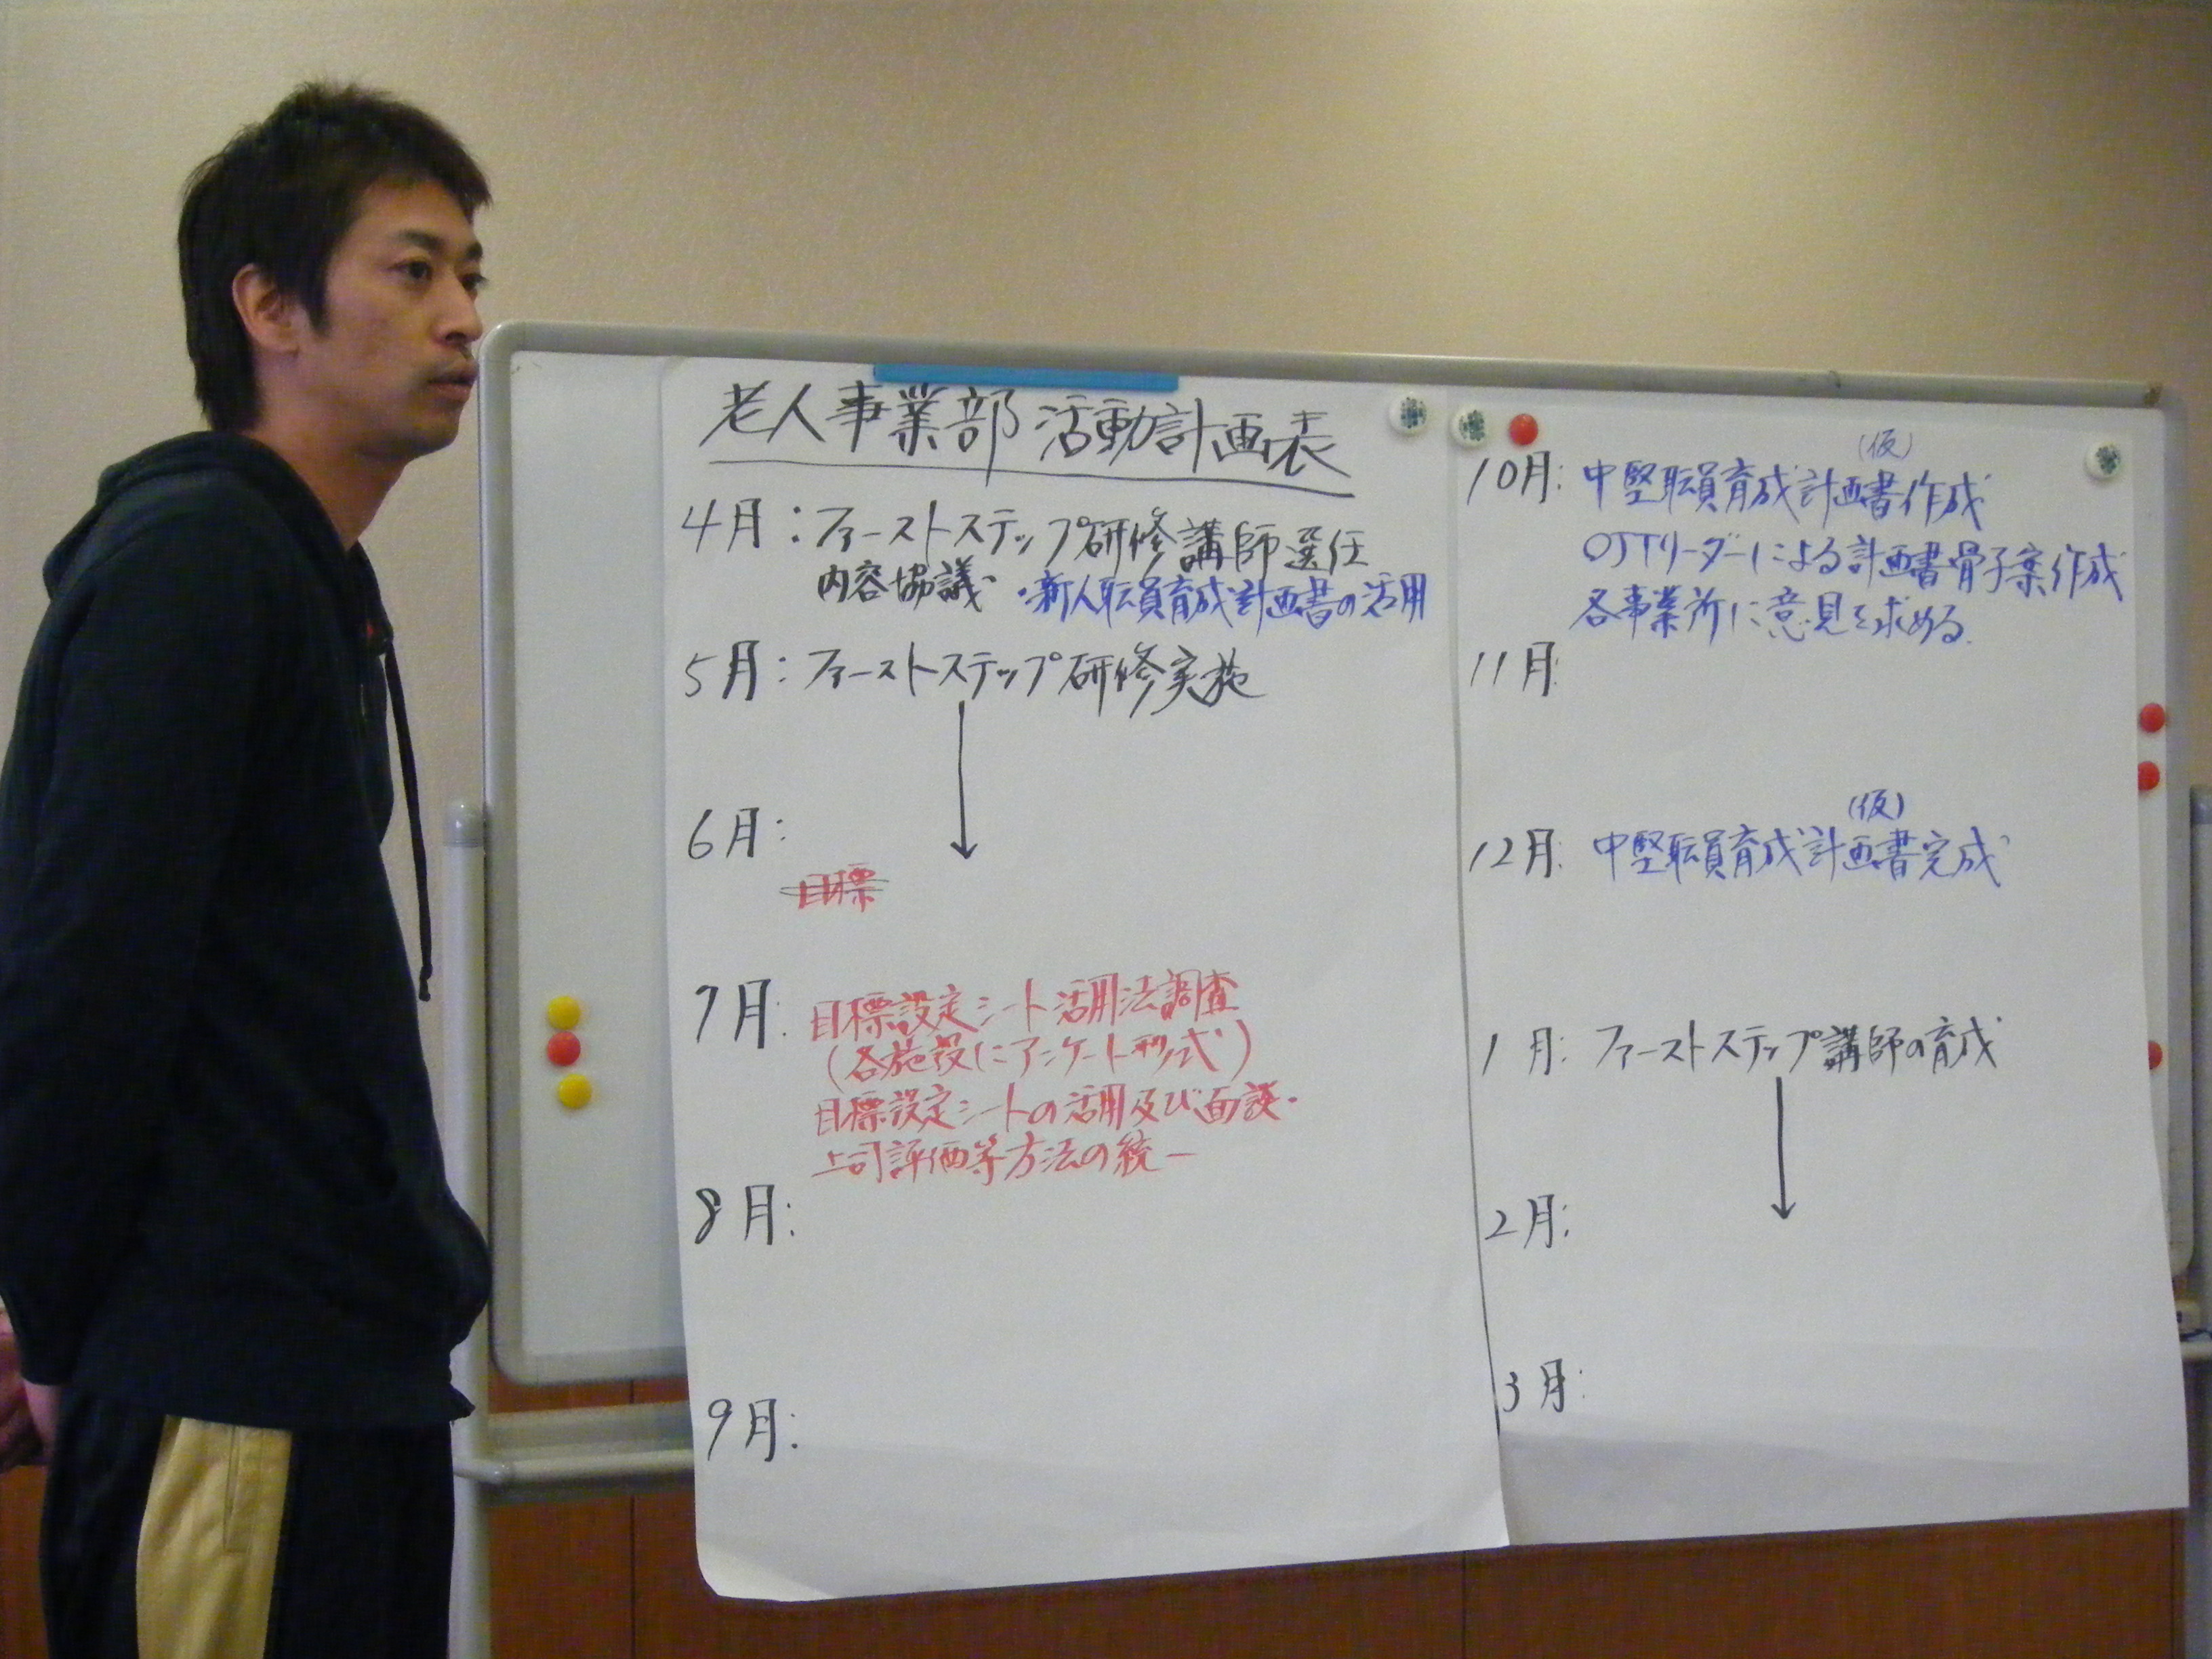 老人事業部 活動計画表
4月：ファーストステップ研修講師選任
内容協議・ ・新人職員育成計画書の活用
5月：ファーストステップ研修実施
6月：
目標
7月：目標設定シート活用法調査
(各施設にアンケート形式)
目標設定シートの活用及び面談・
上司評価等方法の統一
8月：
9月：
(仮)
10月：中堅職員育成計画書作成
OJTリーダーによる計画書骨子案作成
各事業所に意見を求める.
11月：
(仮)
12月：中堅職員育成計画書完成
1月：ファーストステップ講師の育成
2月：
3月：